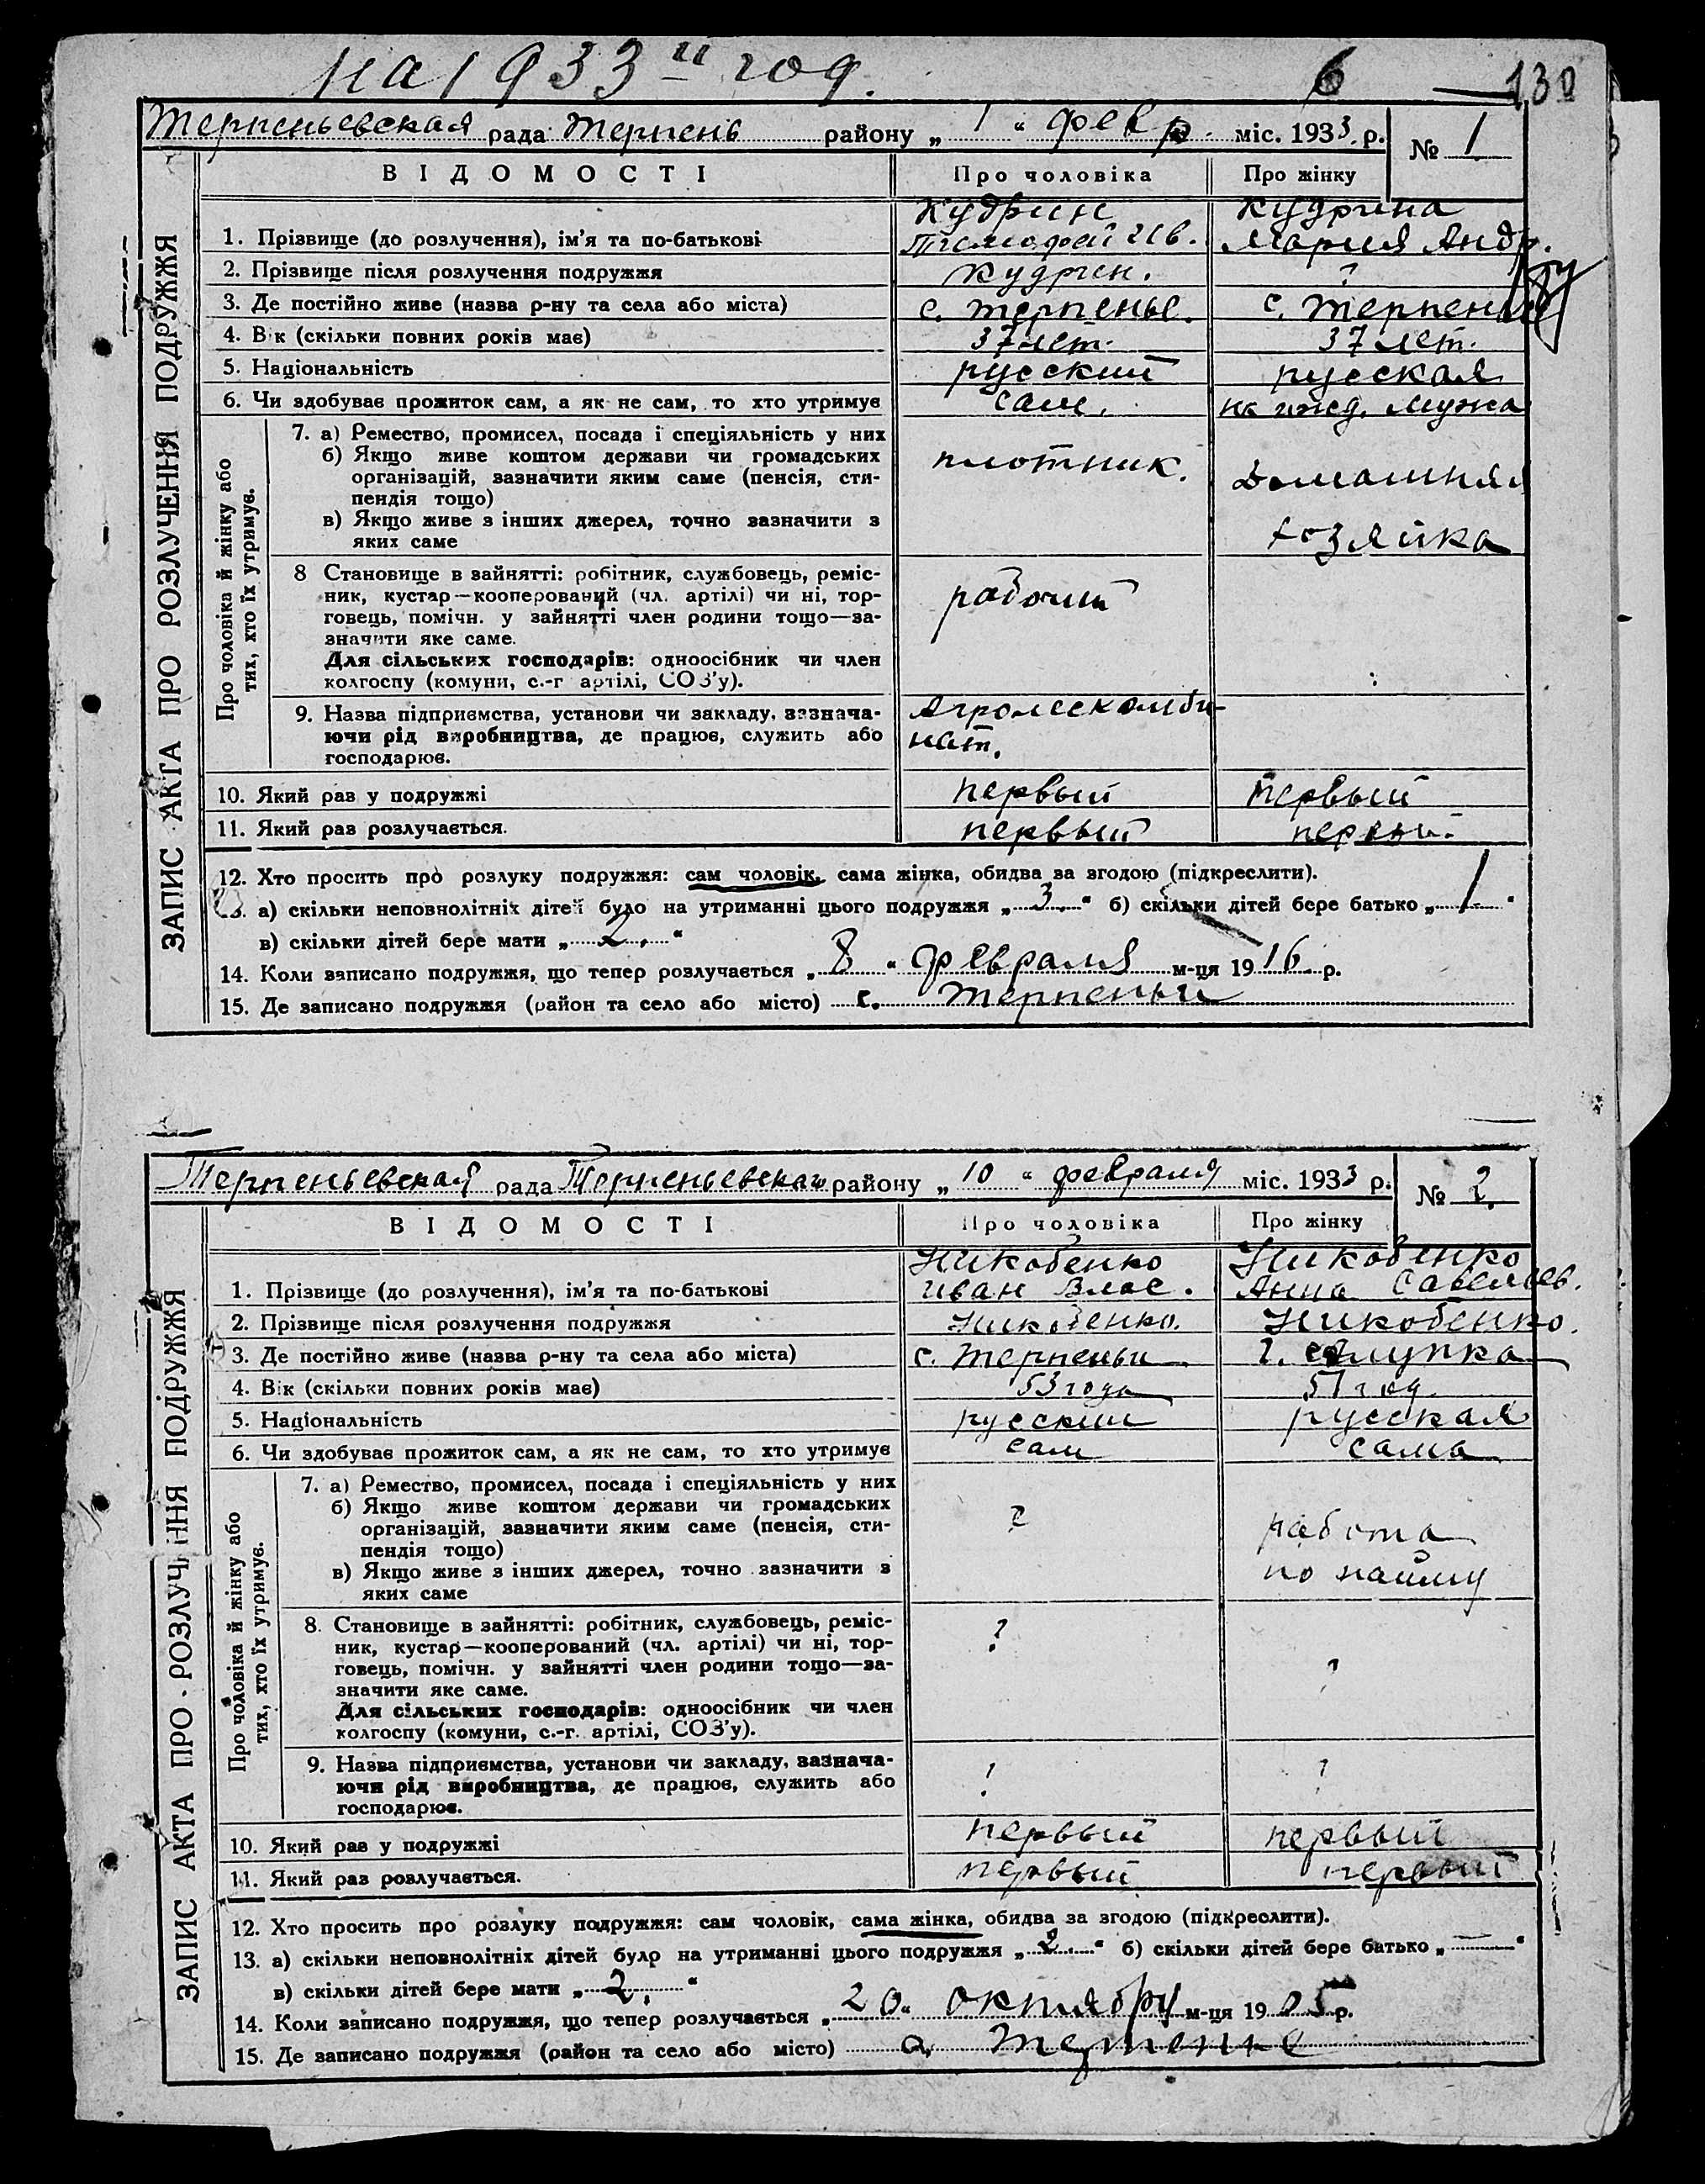 на 1933 й год.
6 130
Терпеньевская рада Терпень району „ 1 “ февр. міс. 1933. р.
№ 1
ВІДОМОСТІ Про чоловіка Про жінку
Кудрин Кудрина
1. Прізвище (до розлучення), ім'я та по-батькові Тимофей Ив. Мария Андр.
2. Прізвище після розлучення подружжя Кудрин. ?
3. Де постійно живе (назва р-ну та села або міста) с. Терпенье. с. Терпенье
4. Вік (скільки повних років має) 37 лет. 37 лет.
5. Національність русский русская
6. Чи здобуває прожиток сам, а як не сам, то хто утримує сам. на ижд. мужа
7. а) Ремество, промисел, посада і спеціяльність у них
б) Якщо живе коштом держави чи громадських плотник.
організацій, зазначити яким саме (пенсія, сти- Домашняя
пендія тощо)
в) Якщо живе з інших джерел, точно зазначити з
яких саме хозяйка
8 Становище в зайнятті: робітник, службовець, реміс-
ник, кустар—кооперований (чл. артілі) чи ні, тор- рабочий
говець, помічн. у зайнятті член родини тощо—за-
значити яке саме.
Для сільських господарів: одноосібник чи член
колгоспу (комуни, с.-г артілі, СОЗ'у).
9. Назва підприємства, установи чи закладу, зазнача- Агролескомби-
ючи рід виробництва, де працює, служить або нат.
господарює.
10. Який раз у подружжі первый первый
11. Який раз розлучається. первый первый.
12. Хто просить про розлуку подружжя: сам чоловік, сама жінка, обидва за згодою (підкреслити).
13. а) скільки неповнолітніх дітей було на утриманні цього подружжя „ 3. “ б) скільки дітей бере батько „ 1 “
в) скільки дітей бере мати „ 2. “
14. Коли записано подружжя, що тепер розлучається „ 8 “ февраля м-ця 1916 р.
15. Де записано подружжя (район та село або місто) с. Терпеньи
Про чоловіка й жінку або
тих, хто їх утримує.
ЗАПИС АКТА ПРО РОЗЛУЧЕННЯ ПОДРУЖЖЯ
Терпеньевская рада Терпеньевская району „ 10 “ февраля міс. 1933 р.
№ 2.
ВІДОМОСТІ Про чоловіка Про жінку
Никобенко Никобенко
1. Прізвище (до розлучення), ім'я та по-батькові Иван Влас. Анна Савельев.
2. Прізвище після розлучення подружжя Никобенко. Никобенко.
3. Де постійно живе (назва р-ну та села або міста) с. Терпеньи г. Алупка
4. Вік (скільки повних років має) 53 года 51 год
5. Національність русский русская
6. Чи здобуває прожиток сам, а як не сам, то хто утримує сам сама
7. а) Ремество, промисел, посада і спеціяльність у них
б) Якщо живе коштом держави чи громадських ?
організацій, зазначити яким саме (пенсія, сти- работа
пендія тощо)
в) Якщо живе з інших джерел, точно зазначити з по найму
яких саме
8. Становище в зайнятті: робітник, службовець, реміс-
ник, кустар—кооперований (чл. артілі) чи ні, тор- ?
говець, помічн. у зайнятті член родини тощо—за- ?
значити яке саме.
Для сільських господарів: одноосібник чи член
колгоспу (комуни, с.-г. артілі, СОЗ'у).
9. Назва підприємства, установи чи закладу, зазнача- ? ?
ючи рід виробництва, де працює, служить або
господарює.
10. Який раз у подружжі первый первый
11. Який раз розлучається. первый первый
12. Хто просить про розлуку подружжя: сам чоловік, сама жінка, обидва за згодою (підкреслити).
13. а) скільки неповнолітніх дітей було на утриманні цього подружжя „ 2. “ б) скільки дітей бере батько „ — “
в) скільки дітей бере мати „ 2. “
14. Коли записано подружжя, що тепер розлучається „ 20 “ октября м-ця 1905 р.
15. Де записано подружжя (район та село або місто) с. Терпенье
Про чоловіка й жінку або
тих, хто їх утримує.
ЗАПИС АКТА ПРО РОЗЛУЧЕННЯ ПОДРУЖЖЯ